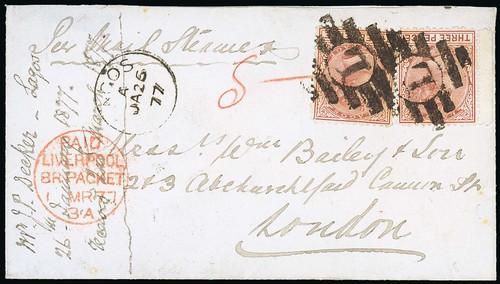 Per Mail Steamer
LAGOS
A
JA 26
77
THREE PENCE
5
Messrs Wm Bailey & Son
2 & 3 Abchurch Yard Cannon St
London
PAID
LIVERPOOL
BR. PACKET
MR 77
3A
Mr J.P. Decker - Lagos
26th January 1877.